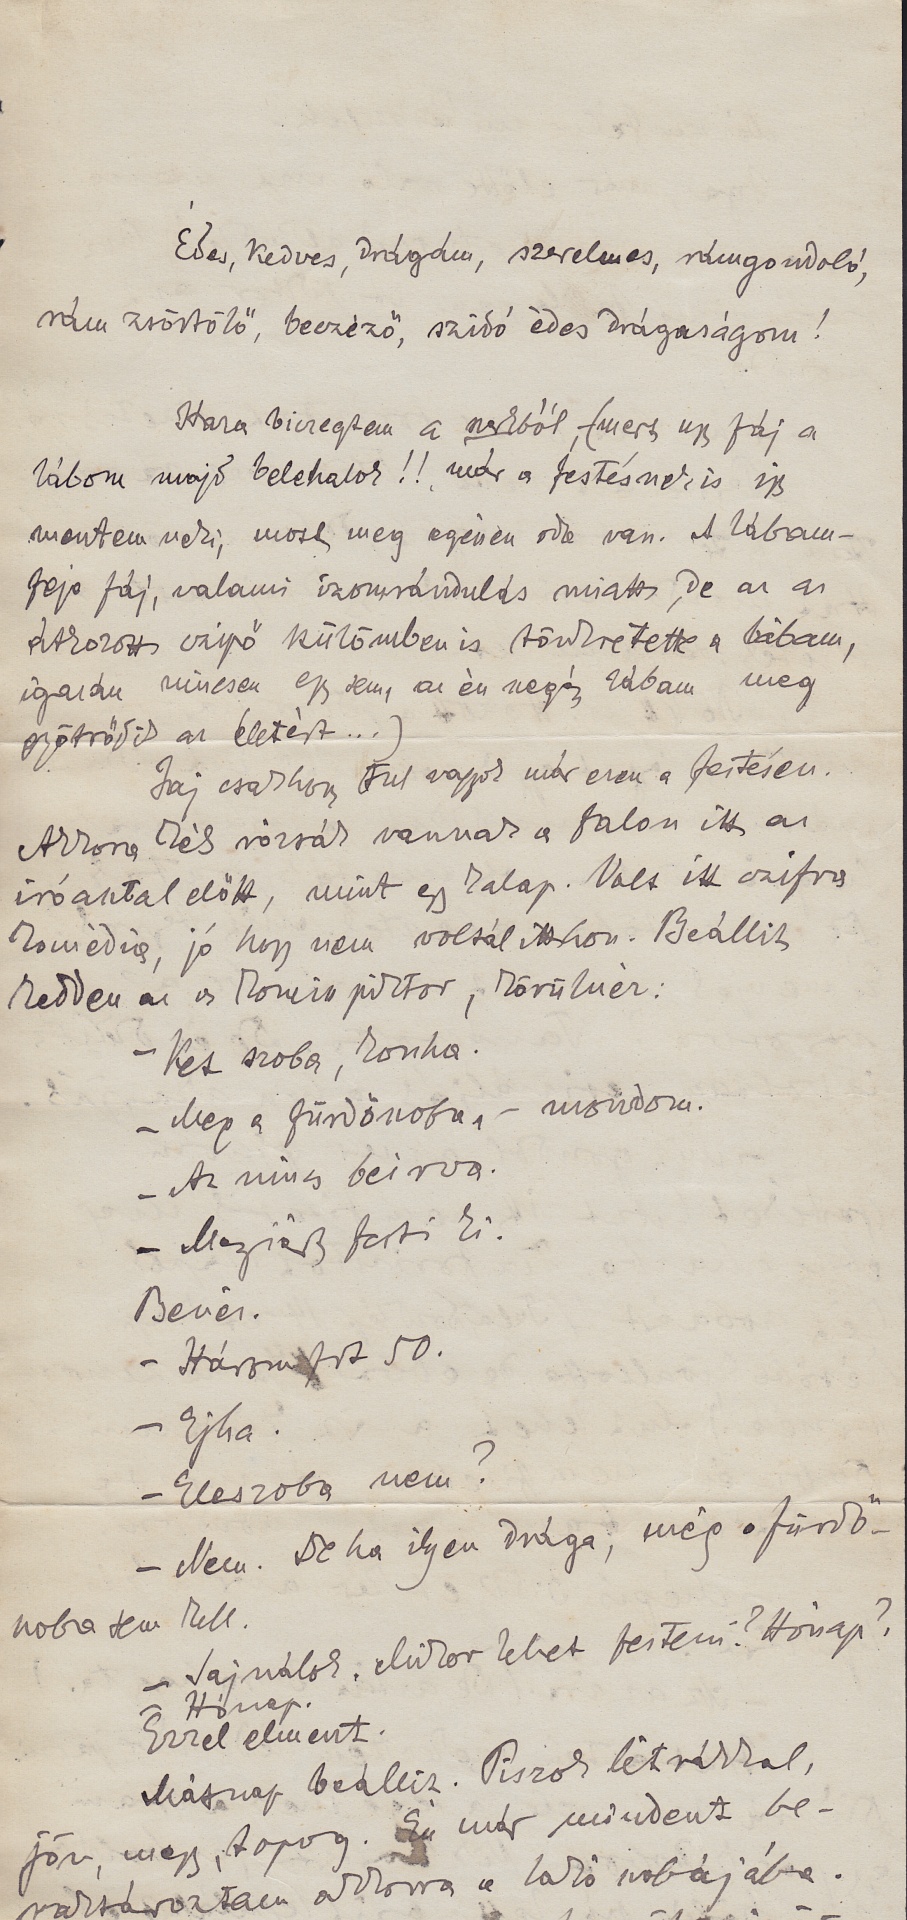 Édes, kedves, drágám, szerelmes, rámgondoló,
rám zsörtölő, beczéző, szidó édes drágaságom!
Haza biczegtem a parkból, (mert ugy fáj a
lábom majd belehalok!! már a festésnek is igy
mentem neki, most meg egészen oda van. A lábam-
feje fáj, valami izomrándulás miatt, de az az
átkozott czipő külömben is tönkretette a lábam,
igazán nincsen egy sem, az én negyz lábam meg
az életért ...)
Jaj csakhogy tul vagyok már ezen a festésen.
Akkora kék rózsák vannak a falon itt az
iróasztal előtt, mint egy kalap. Volt itt czifra
komédia, jó hogy nem voltál itthon. Beállit
kedden az a komisz piktor, körülnéz:
– Két szoba, konha.
– Meg a fürdőszoba, – mondom.
– Az nincs beirva.
– Mégis festi ki.
Benéz.
– Három frt 50.
– Ejha.
– Éléskamra nem?
– Nem. De ha ilyen drága, még a fürdő-
szoba sem kell.
– Sajnálok. Mikor lehet festeni? Hónap?
– Hónap.
Ezzel elment.
Másnap beállit. Piszok létrákkal,
jön, megy, topog. Én már mindent be-
raktároztam akkorra a lakó szobájába.